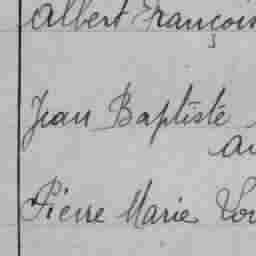 Albert François
Jean Baptiste
Pierre Marie